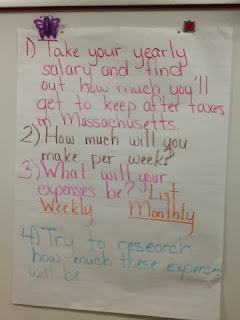 1) Take your yearly
salary and find
out how much you'll
get to keep after taxes
in Massachusetts.
2) How much will you
make per week?
3) What will your
expenses be? List
Weekly Monthly
4) Try to research
how much these expenses
will be